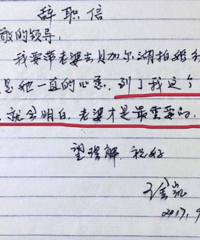 辞职信
敬的领导:
我要带老婆去贝加尔湖拍婚
是她一直的心愿,到了我这个
就会明白,老婆才是最重要的。
望理解 祝好
2017.9